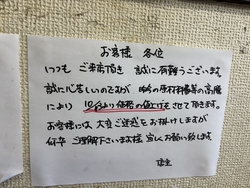 お客様 各位
いつも ご来店頂き 誠に有難うございます。
誠に心苦しいのですが 昨今の原材料費等の高騰
により 10月より価格の値上げをさせて頂きます。
お客様には 大変ご迷惑をお掛けしますが
何卒 ご理解下さいます様 宜しくお願い致します
店主